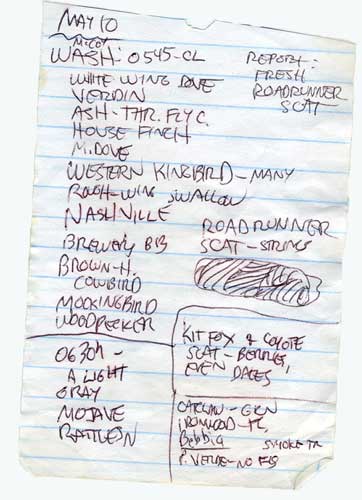 MAY 10
McCOY
WASH- 0545-CL
WHITE WING DOVE
VERDIN
ASH-THR. FLYC.
HOUSE FINCH
M. DOVE
WESTERN KINGBIRD-MANY
ROUGH-WING SWALLOW
NASHVILLE
BREWER'S BB
BROWN-H.
COWBIRD
MOCKINGBIRD
WOODPECKER
REPORT:
FRESH
ROADRUNNER
SCAT
ROADRUNNER
SCAT-STRINGS
0630h-
A LIGHT
GRAY
MOJAVE
RATTLESN
KIT FOX & COYOTE
SCAT-BERRIES,
EVEN DATES
CATCLAW-GRN
IRONWOOD-FL,
Bebbia
SMOKE TR
P. VERDE-NO FLS